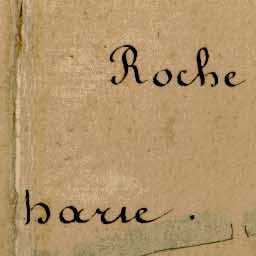 Roche
barie.